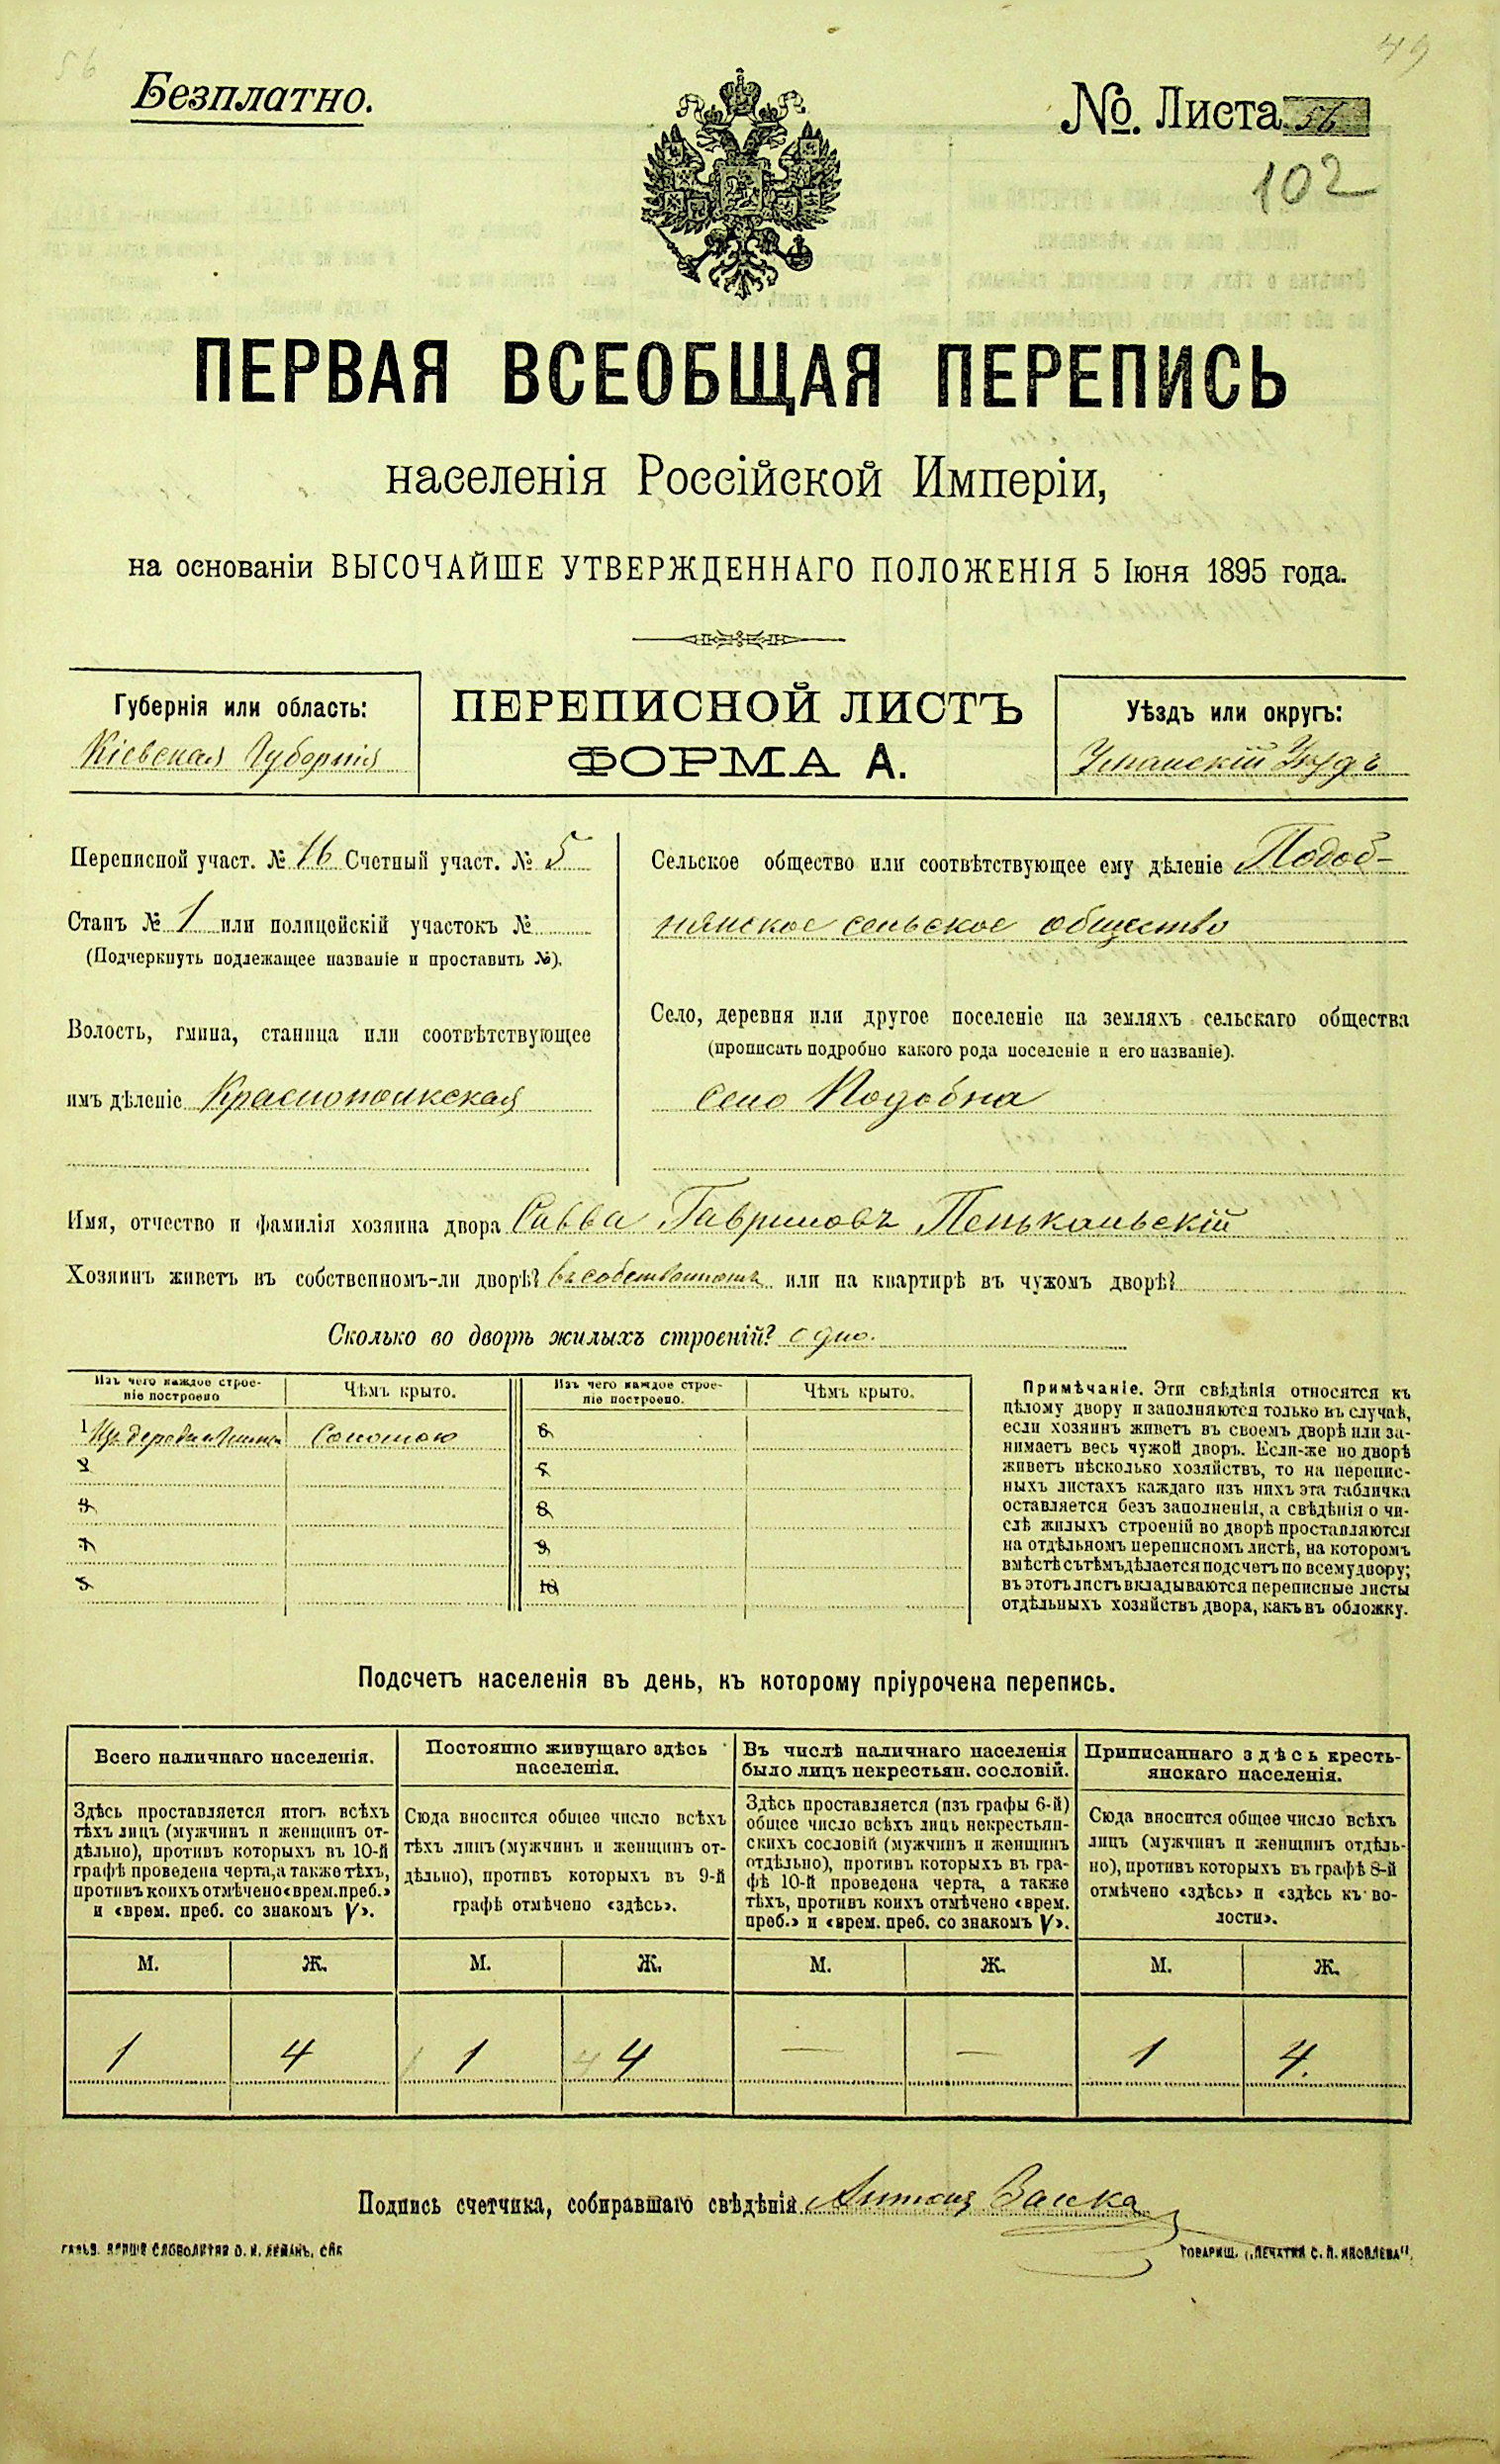 56
49
Безплатно.
№. Листа 56
102
ПЕРВАЯ ВСЕОБЩАЯ ПЕРЕПИСЬ
населенія Россійской Имперіи,
на основаніи ВЫСОЧАЙШЕ УТВЕРЖДЕННАГО ПОЛОЖЕНІЯ 5 Іюня 1895 года.
Губернія или область:
Кіевская Губернія
ПЕРЕПИСНОЙ ЛИСТЪ
ФОРМА А.
Уѣздъ или округъ:
Уманскій Уѣздъ
Переписной участ. № 16 Счетный участ. № 5
Станъ № 1 или полицейскій участокъ №
(Подчеркнуть подлежащее названіе и проставить №).
Волость, гмина, станица или соотвѣтствующее
имъ дѣленіе Краснополкская
Сельское общество или соотвѣтствующее ему дѣленіе Подоб-
нянское сельское общество
Село, деревня или другое поселеніе на земляхъ сельскаго общества
(прописать подробно какого рода поселеніе и его названіе).
село Подобна
Имя, отчество и фамилія хозяина двора Савва Гавриловъ Пенькальскій
Хозяинъ живетъ въ собственномъ-ли дворѣ? въ собственномъ или на квартирѣ въ чужомъ дворѣ?
Сколько во дворѣ жилыхъ строеній? одно.
Изъ чего каждое строе-
ніе построено
Чѣмъ крыто.
Изъ чего каждое строе-
ніе построено.
Чѣмъ крыто.
1 Изъ дерева и глины Соломою
2
3
4
5
6
7
8
9
10
Примѣчаніе. Эти свѣдѣнія относятся къ
цѣлому двору и заполняются только въ случаѣ,
если хозяинъ живетъ въ своемъ дворѣ или за-
нимаетъ весь чужой дворъ. Если-же во дворѣ
живетъ нѣсколько хозяйствъ, то на перепис-
ныхъ листахъ каждаго изъ нихъ эта табличка
оставляется безъ заполненія, а свѣдѣнія о чи-
слѣ жилыхъ строеній во дворѣ проставляются
на отдѣльномъ переписномъ листѣ, на которомъ
вмѣстѣ съ тѣмъ дѣлается подсчетъ по всему двору;
въ этотъ листъ вкладываются переписные листы
отдѣльныхъ хозяйствъ двора, какъ въ обложку.
Подсчетъ населенія въ день, къ которому пріурочена перепись.
Всего наличнаго населенія.
Здѣсь проставляется итогъ всѣхъ
тѣхъ лицъ (мужчинъ и женщинъ от-
дѣльно), противъ которыхъ въ 10-й
графѣ проведена черта, а также тѣхъ,
противъ коихъ отмѣчено «врем. преб.»
и «врем. преб. со знакомъ V».
М. Ж.
1 4
Постоянно живущаго здѣсь
населенія.
Сюда вносится общее число всѣхъ
тѣхъ лицъ (мужчинъ и женщинъ от-
дѣльно), противъ которыхъ въ 9-й
графѣ отмѣчено «здѣсь».
М. Ж.
1 1 4 4
Въ числѣ наличнаго населенія
было лицъ некрестьян. сословій.
Здѣсь проставляется (изъ графы 6-й)
общее число всѣхъ лицъ некрестьян-
скихъ сословій (мужчинъ и женщинъ
отдѣльно), противъ которыхъ въ гра-
фѣ 10-й проведена черта, а также
тѣхъ, противъ коихъ отмѣчено «врем.
преб.» и «врем. преб. со знакомъ V».
М. Ж.
— —
Приписаннаго здѣсь кресть-
янскаго населенія.
Сюда вносится общее число всѣхъ
лицъ (мужчинъ и женщинъ отдѣль-
но), противъ которыхъ въ графѣ 8-й
отмѣчено «здѣсь» и «здѣсь къ во-
лости».
М. Ж.
1 4.
Подпись счетчика, собиравшаго свѣдѣнія Антонъ
СЛОВОЛИТНЯ О. И. ЛЕМАНЪ, СПБ
ТОВАРИЩ. „ПЕЧАТНЯ С. П. ЯКОВЛЕВА“.